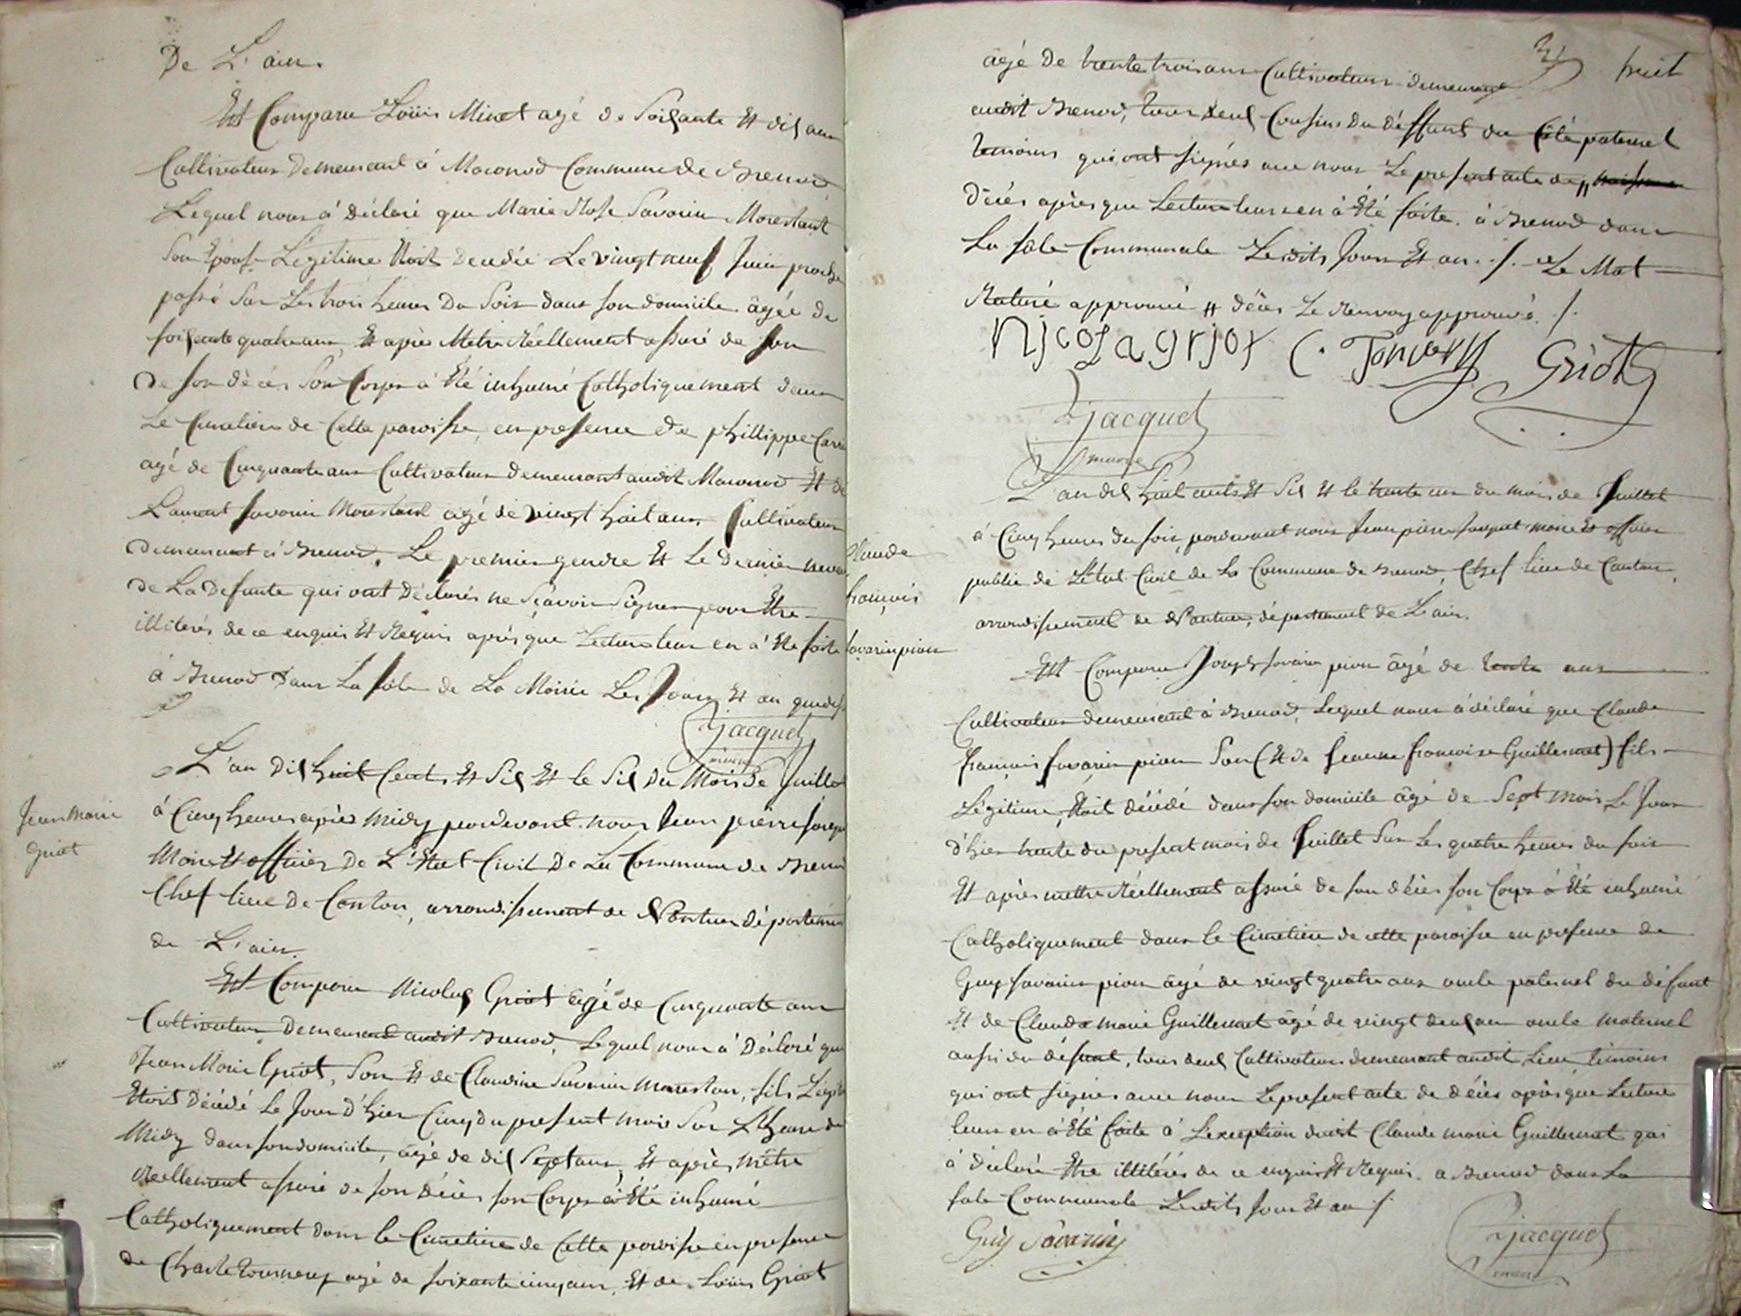 De L'ain.
Est Comparu Loüis Minet agé de Soixante Et dix ans
Cultivateur Demeurant à Maconod Commune de Brenod
Lequel nous à déclaré que Marie Rose Savarin Morestant
Son Epouse Légitime Etoit Decedée Le vingt neuf Juin proche
passé Sur Les trois heures Du Soir dans son domicile âgée de
soixante quatre ans, Et après Mêtre Réellement assuré de son
de son décès Son Corps à Eté inhumé Catholiquement dans
Le Cimetiere de Cette paroisse, en presence de phillippe
agé de Cinquante ans Cultivateur demeurant audit Maconod Et de
Laurent Savarin Morestant agé de vingt huit ans Cultivateur
demeurant à Brenod, Le premier gendre Et Le dernier neveu
de La Defunte qui ont Déclarés ne Sçavoir Signer pour Etre
illiterés de ce enquis Et Requis après que Lecture leur en à Eté faite
à Brenod Dans La Sale de La Mairie Les Jours Et an que dessus
Jacquet
maire
Jean Marie
Griot
L'an dix huit Cents Et Six Et le Six du Mois De Juillet
à Cinq heures après midy pardevant nous Jean pierre Jacquet
Maire Et officier De L'Etat Civil De La Commune de Brenod
Chef lieu De Canton, arrondissement de Nantua département
de L'ain.
Est Comparu Nicolas Griot agé de Cinquante ans
Cultivateur Demeurant audit Brenod, Lequel nous à Déclaré que
Jean Marie Griot, Son Et de Claudine Savarin Morestan, fils Légitime
Etoit Décédé Le Jour D'hier Cinq du present mois Sur L'heure de
Midy dans son domicile, âgé de dix Sept ans, Et après Mêtre
Réellement assuré de son Décès son Corps à Eté inhumé
Catholiquement dans le Cimetiere de Cette paroisse en presence
de Charle Tournery agé de soixante cinq ans, Et de Loüis Griot
huit
âgé de trente trois ans Cultivateur demeurant
audit Brenod, tous deux Cousins Du Déffunt du Côté paternel
temoins qui ont signés avec nous Le present acte de // naissance
Décès après que Lecture leur en à Eté faite à Brenod dans
La sale Communale Lesdits Jour Et an ./. Le Mot
Raturé approuvé // décès Le Renvoy approuvé ./.
Nicola griot C. Tornery Griot
Jacquet
maire
Claude
françois
savarin pion
L'an dix huit cents Et Six Et le trente un du mois de Juillet
à Cinq heures du soir, pardevant nous Jean pierre Jacquet maire Et officier
public de L'état Civil de La Commune de Brenod, Chef lieu de Canton,
arrondissement de Nantua, département de L'ain.
Est Comparu Joseph Savarin pion âgé de trente ans
Cultivateur demeurant à Brenod, Lequel nous à déclaré que Claude
François Savarin pion Son (Et de Jeanne françoise Guillermet) fils
Légitime, Etoit décédé dans son domicile âgé de Sept mois, Le Jour
d'hier trente du present mois de Juillet Sur Les quatre heures du soir
Et après mettre Réellement assuré de son décès son Corps à Eté inhumé
Catholiquement dans le Cimetiere de cette paroisse en presence de
Guy Savarin pion âgé de vingt quatre ans oncle paternel du défunt
Et de Claude marie Guillermet âgé de vingt deux ans oncle maternel
aussi du défunt, tous deux Cultivateurs demeurant audit Lieu, témoins
qui ont signés avec nous Le present acte de décès après que Lecture
leur en à Eté faite à L'exception dudit Claude marie Guillermet qui
à déclaré Etre illitéré de ce enquis Et Requis. à Brenod dans La
sale Communale Lesdits Jour Et an ./.
Guy Savarin
Jacquet
maire